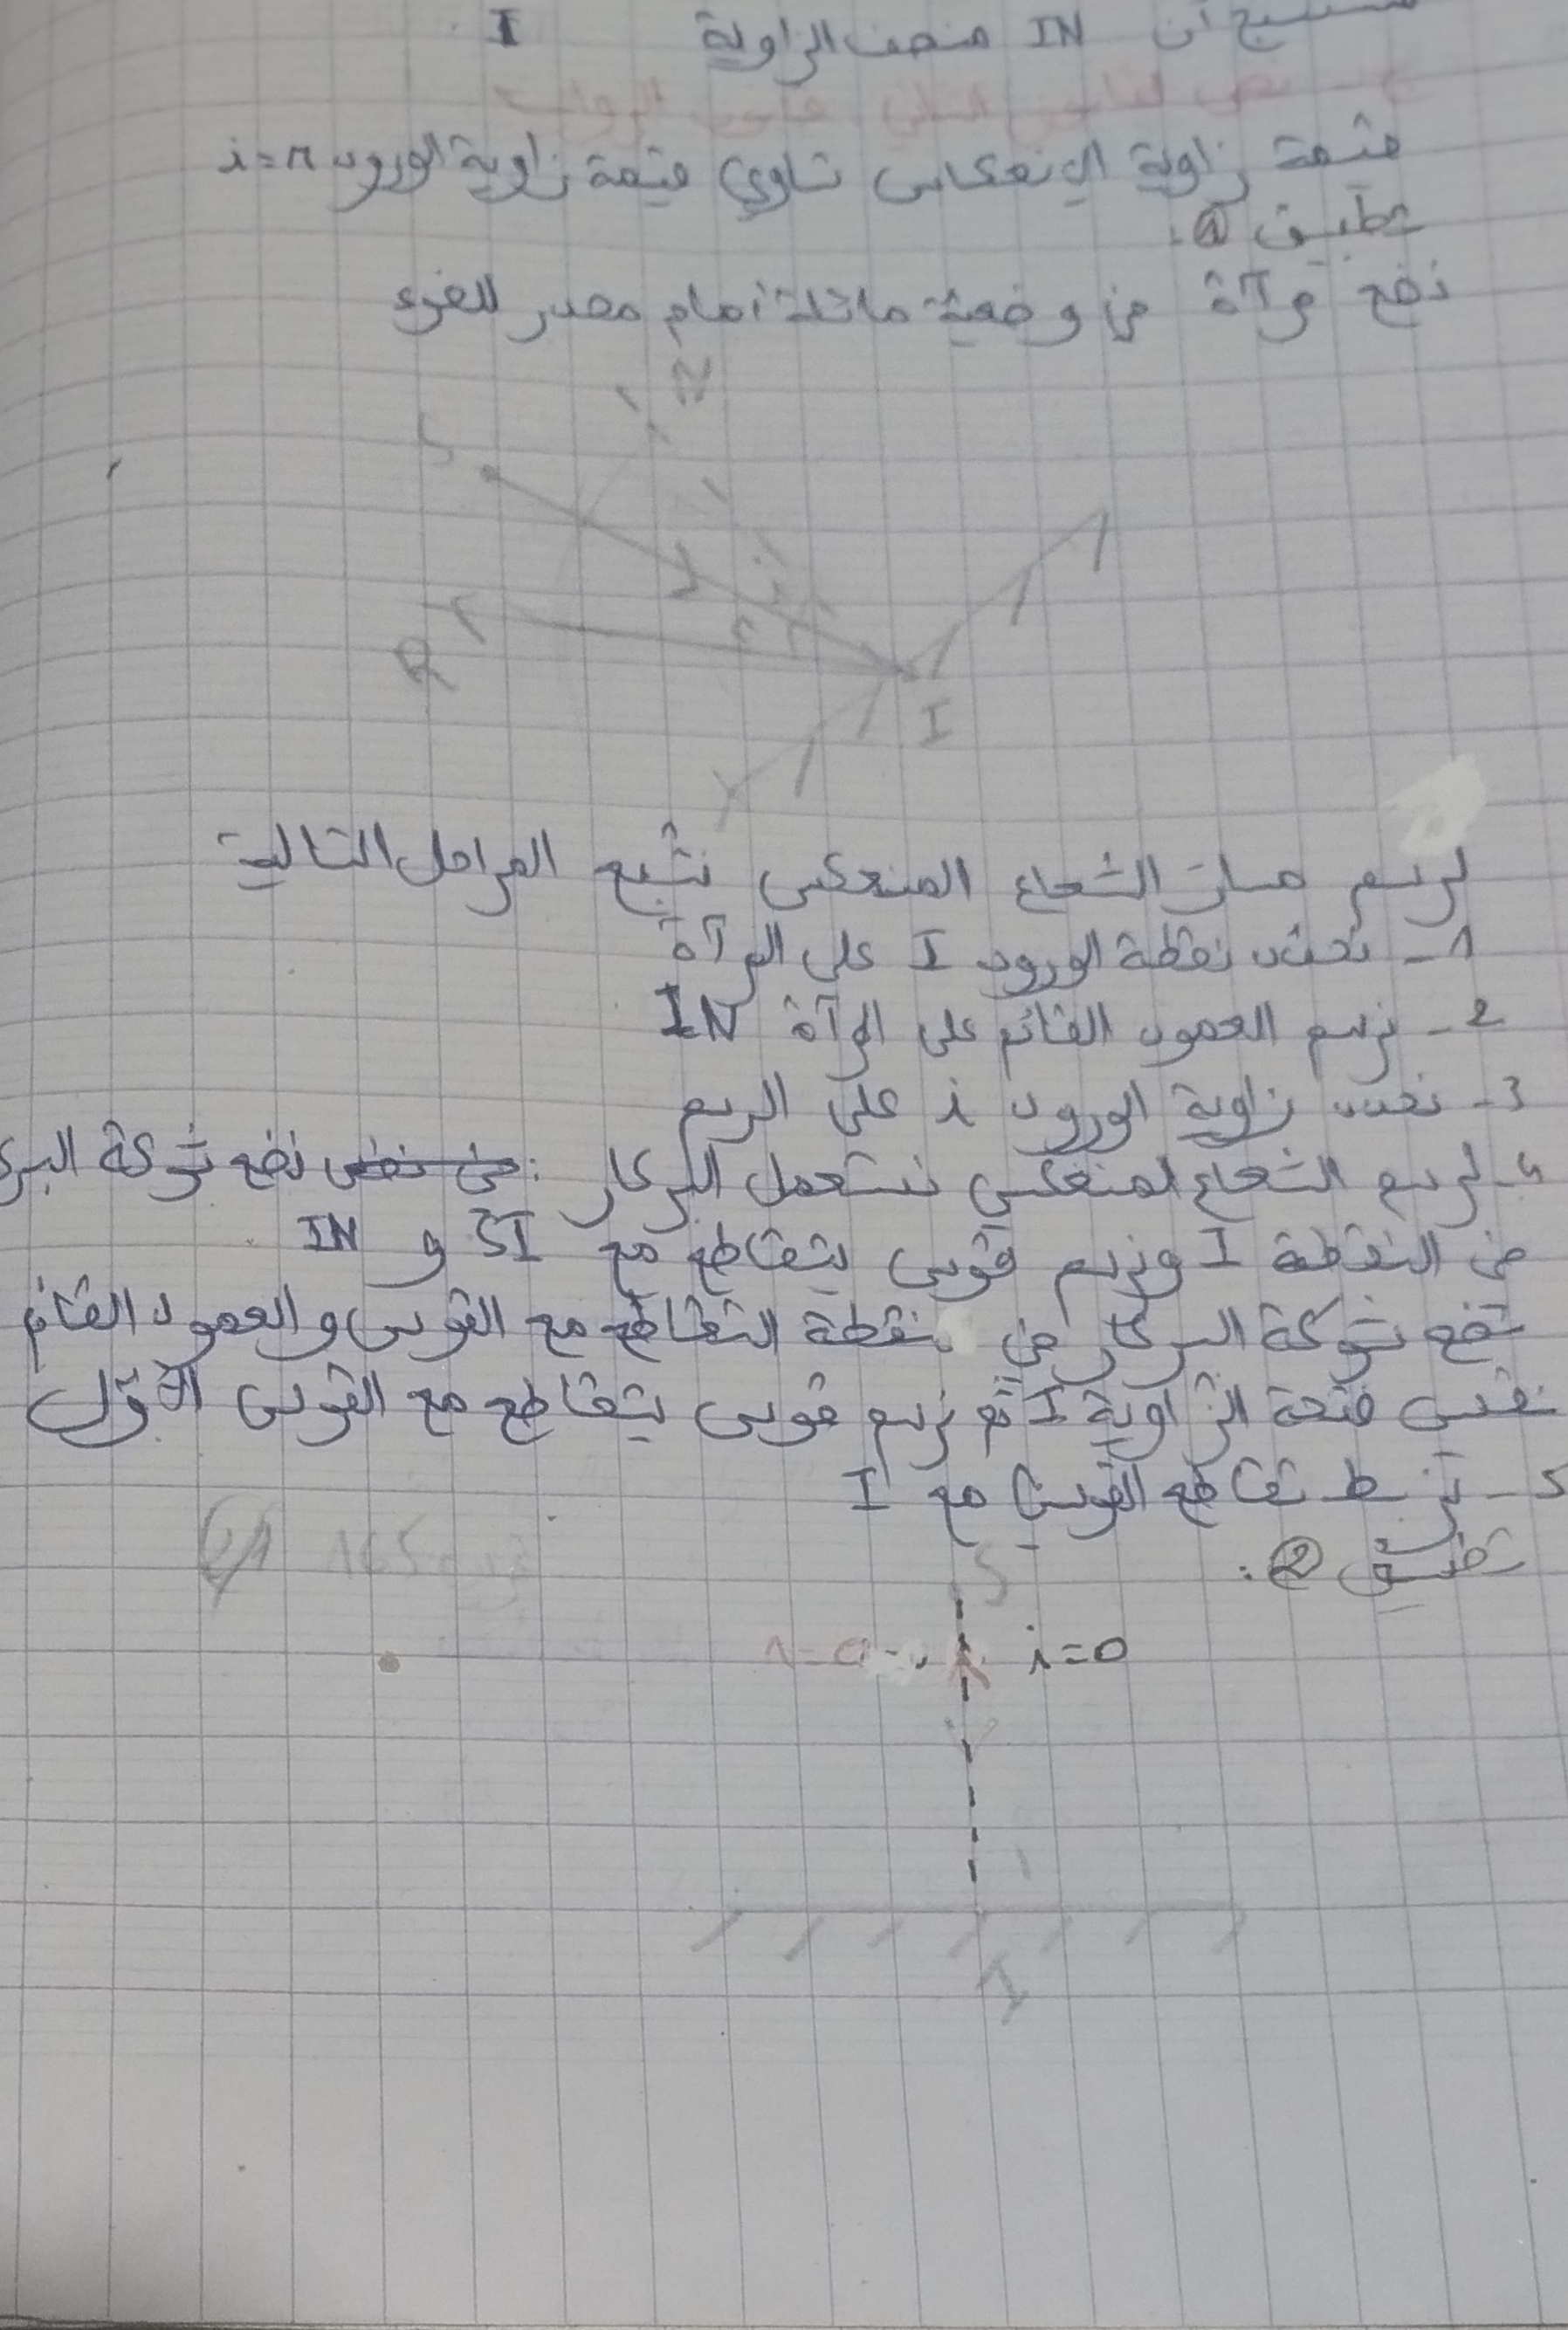 أن IN منصف الزاوية I
نص القانون الثاني
قيمة زاوية الإنعكاس تساوي قيمة زاوية الورود i=r
تطبيق ①:
نضع مرآة في وضعية مائلة أمام مصدر للضوء
N
S
i
r
R
I
لرسم مسار الشعاع المنعكس نتبع المراحل التالية
1- نحدد نقطة الورود I على المرآة
2- نرسم العمود القائم على المرآة IN
3- نحدد زاوية الورود i على الرسم
4- لرسم الشعاع المنعكس نستعمل البركار: نضع شوكة
في النقطة I ونرسم قوس يتقاطع مع SI و IN
نضع شوكة البركار في نقطة التقاطع مع القوس والعمود القائم
نقيس فتحة الزاوية I ثم نرسم قوس يتقاطع مع القوس الأول
5- نربط تقاطع القوسين مع I
تطبيق ②:
S
i=0
I